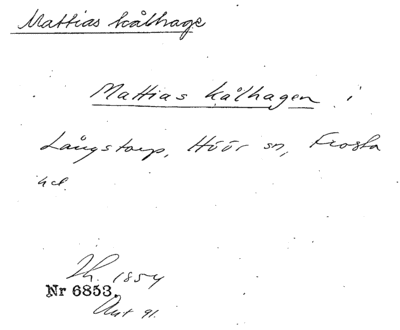 Mattias kålhage
Mattias kålhagen i
Långstorp, Höör sn, Frosta
hd.
Th. 1854
Nr 6853.
Aut 91.